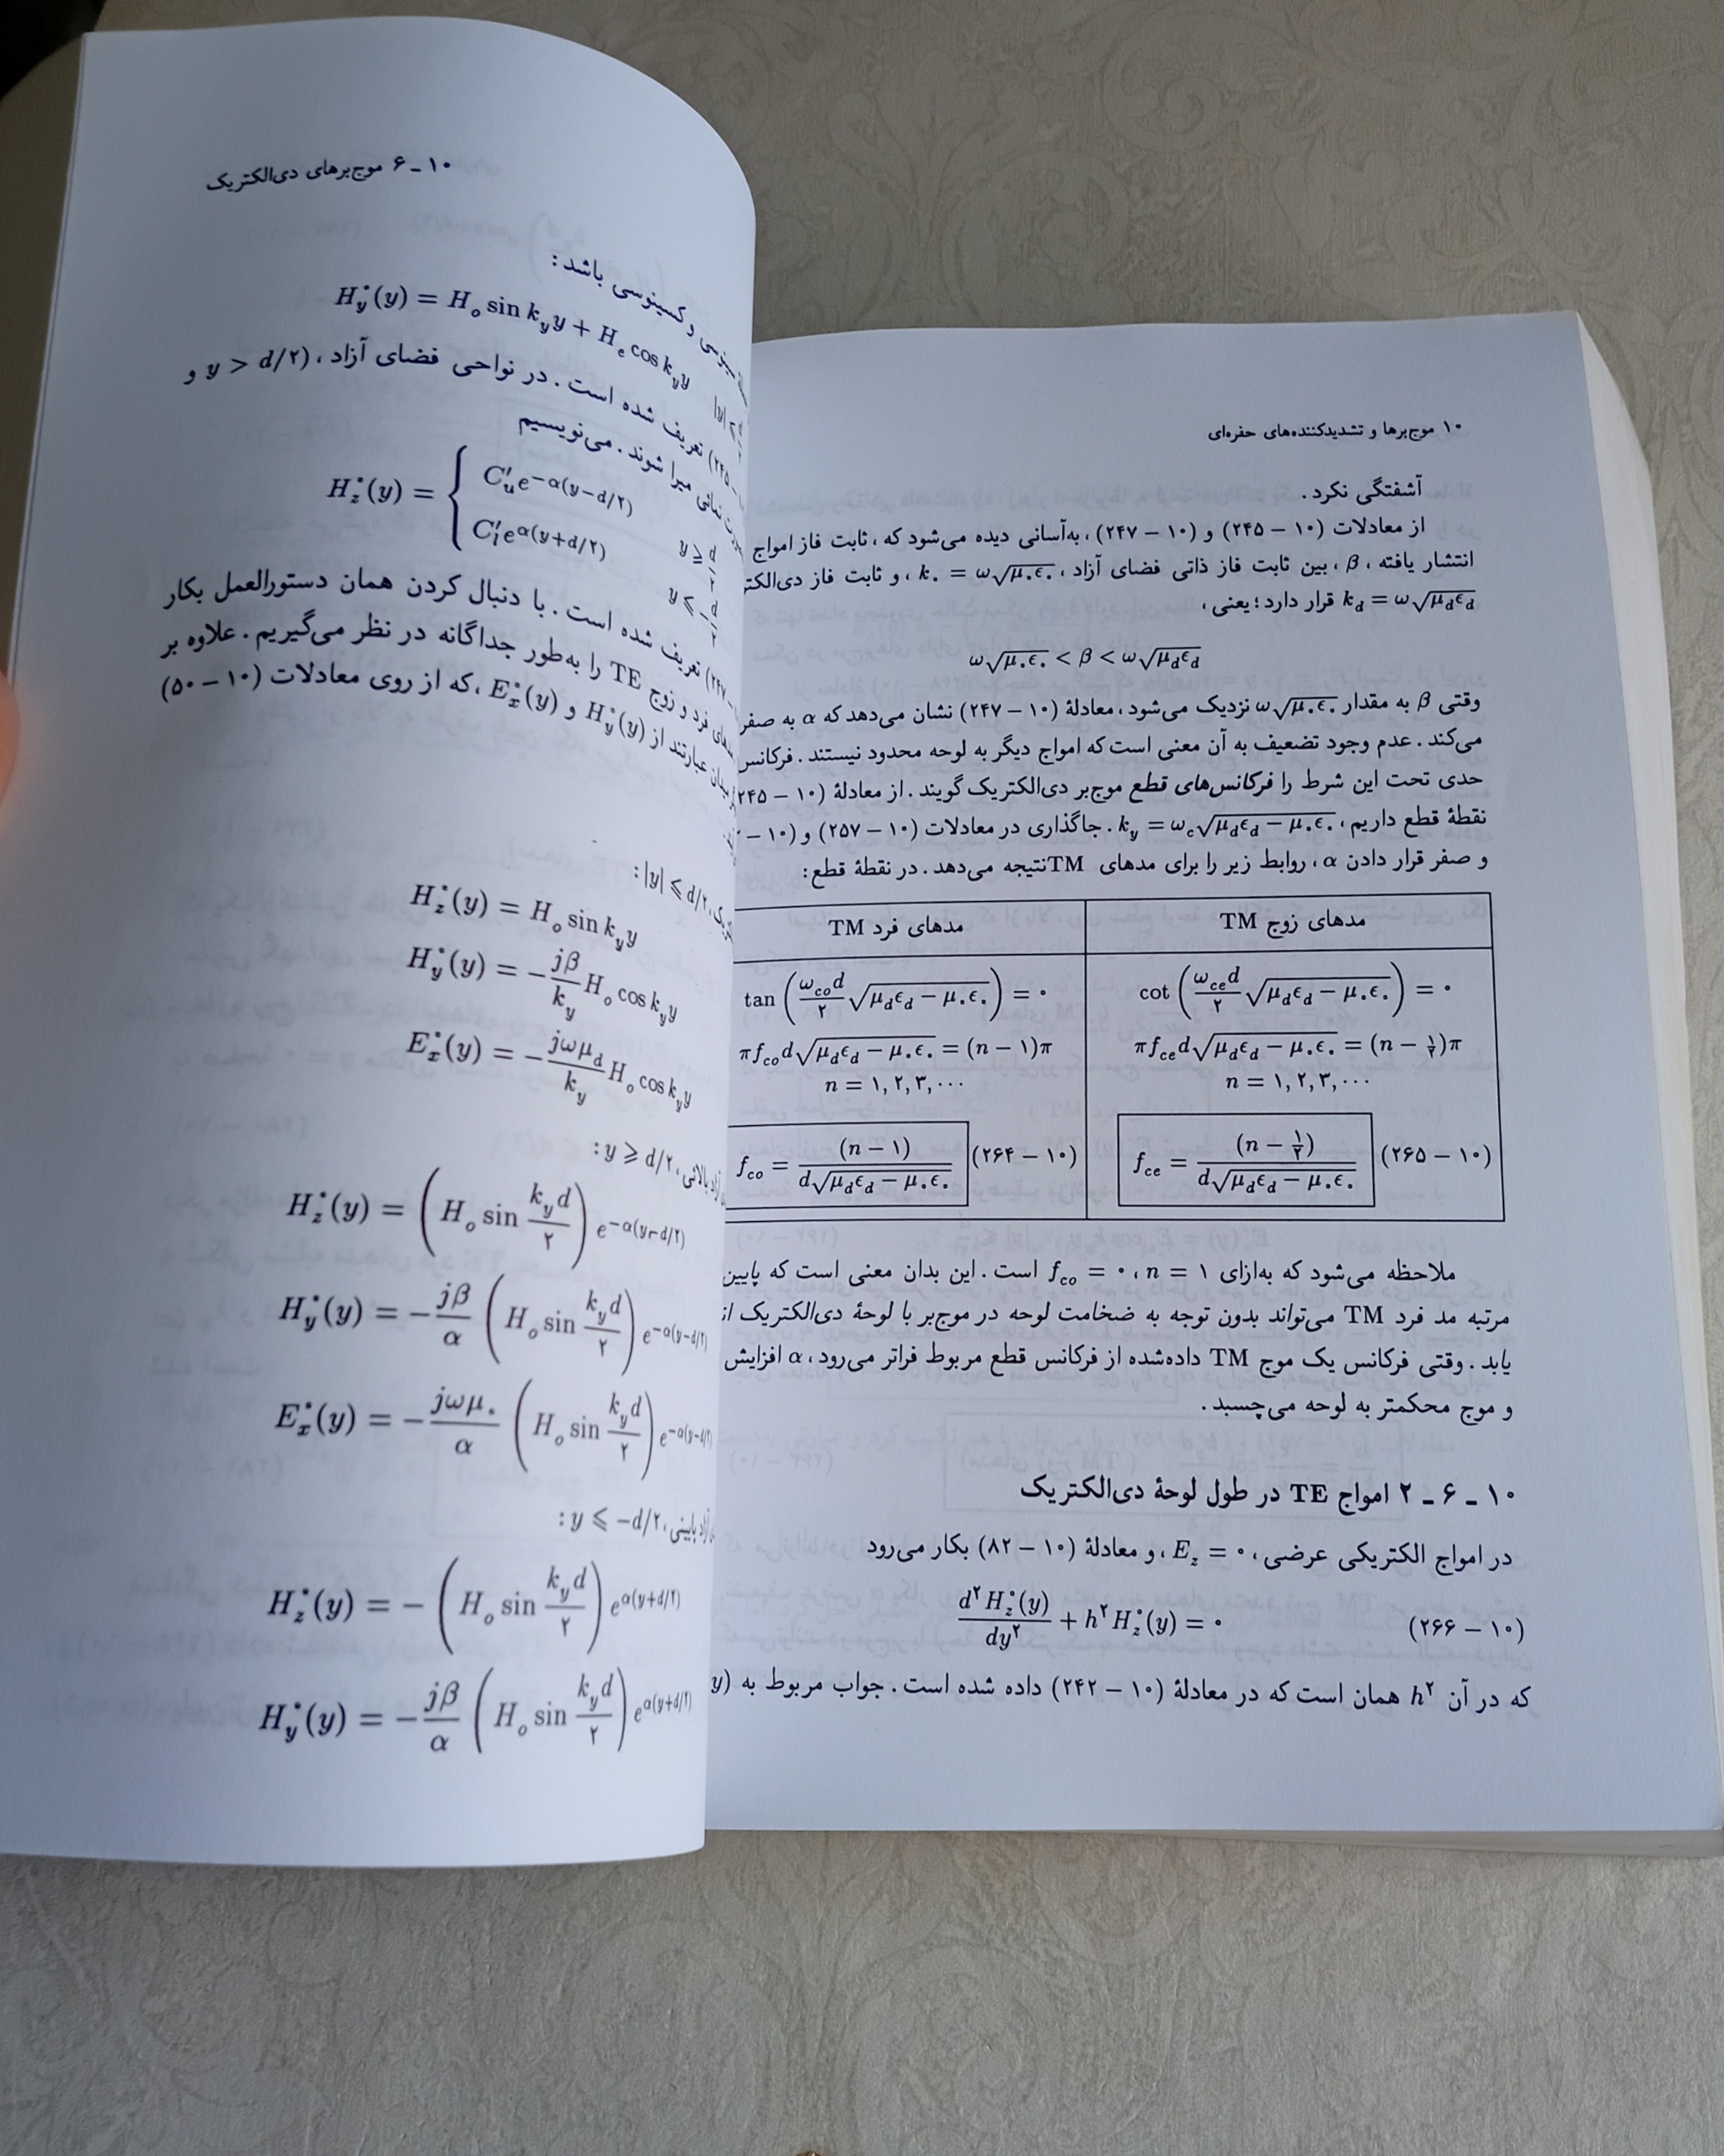 ۱۰ موج‌برها و تشدیدکننده‌های حفره‌ای
آشفتگی نکرد.
از معادلات (۱۰ – ۲۴۵) و (۱۰ – ۲۴۷)، به‌آسانی دیده می‌شود که، ثابت فاز امواج
انتشار یافته، β، بین ثابت فاز ذاتی فضای آزاد، k₀ = ω√(μ₀ϵ₀)، و ثابت فاز
k_d = ω√(μ_dϵ_d) قرار دارد؛ یعنی،
ω√(μ₀ϵ₀) < β < ω√(μ_dϵ_d)
وقتی β به مقدار ω√(μ₀ϵ₀) نزدیک می‌شود، معادلهٔ (۱۰ – ۲۴۷) نشان می‌دهد که α به صفر
می‌کند. عدم وجود تضعیف به آن معنی است که امواج دیگر به لوحه محدود نیستند. فرکانس
حدی تحت این شرط را فرکانس‌های قطع موج‌بر دی‌الکتریک گویند. از معادلهٔ (۱۰ – ۲۴۵
نقطهٔ قطع داریم، k_y = ω_c√(μ_dϵ_d – μ₀ϵ₀). جاگذاری در معادلات (۱۰ – ۲۵۷) و (۱۰ –
و صفر قرار دادن α، روابط زیر را برای مدهای TM نتیجه می‌دهد. در نقطهٔ قطع:
مدهای زوج TM مدهای فرد TM
cot (ω_ce d/۲ √(μ_dϵ_d – μ₀ϵ₀)) = ۰ tan (ω_co d/۲ √(μ_dϵ_d – μ₀ϵ₀)) = ۰
πf_ce d√(μ_dϵ_d – μ₀ϵ₀) = (n – ۱/۲)π πf_co d√(μ_dϵ_d – μ₀ϵ₀) = (n – ۱)π
n = ۱, ۲, ۳, ⋯ n = ۱, ۲, ۳, ⋯
(۱۰ – ۲۶۵) f_ce = (n – ۱/۲) / d√(μ_dϵ_d – μ₀ϵ₀) (۱۰ – ۲۶۴) f_co = (n – ۱) / d√(μ_dϵ_d – μ₀ϵ₀)
ملاحظه می‌شود که به‌ازای n = ۱، f_co = ۰ است. این بدان معنی است که پایین
مرتبه مد فرد TM می‌تواند بدون توجه به ضخامت لوحه در موج‌بر با لوحهٔ دی‌الکتریک
یابد. وقتی فرکانس یک موج TM داده‌شده از فرکانس قطع مربوط فراتر می‌رود، α افزایش
و موج محکمتر به لوحه می‌چسبد.
۱۰ ـ ۶ ـ ۲ امواج TE در طول لوحهٔ دی‌الکتریک
در امواج الکتریکی عرضی، E_z = ۰، و معادلهٔ (۱۰ – ۸۲) بکار می‌رود
d²H_z°(y)/dy² + h²H_z°(y) = ۰ (۱۰ – ۲۶۶)
که در آن h² همان است که در معادلهٔ (۱۰ – ۲۴۲) داده شده است. جواب مربوط به (y
۱۰ ـ ۶ موج‌برهای دی‌الکتریک
سینوسی و کسینوسی باشد:
H_y°(y) = H_o sin k_y y + H_e cos k_y y
تعریف شده است. در نواحی فضای آزاد، (y > d/۲ و
نمائی میرا شوند. می‌نویسیم
H_z°(y) = { C′_u e^{–α(y–d/۲)} y ⩾ d/۲
C′_l e^{α(y+d/۲)} y ⩽ –d/۲
تعریف شده است. با دنبال کردن همان دستورالعمل بکار
مدهای فرد و زوج TE را به‌طور جداگانه در نظر می‌گیریم. علاوه بر
عبارتند از H_y°(y) و E_x°(y)، که از روی معادلات (۱۰ – ۵۰)
|y| ⩽ d/۲:
H_z°(y) = H_o sin k_y y
H_y°(y) = – jβ/k_y H_o cos k_y y
E_x°(y) = – jωμ_d/k_y H_o cos k_y y
بالائی، y ⩾ d/۲:
H_z°(y) = (H_o sin k_y d/۲) e^{–α(y–d/۲)}
H_y°(y) = – jβ/α (H_o sin k_y d/۲) e^{–α(y–d/۲)}
E_x°(y) = – jωμ₀/α (H_o sin k_y d/۲) e^{–α(y–d/۲)}
آزاد پایینی، y ⩽ –d/۲:
H_z°(y) = – (H_o sin k_y d/۲) e^{α(y+d/۲)}
H_y°(y) = – jβ/α (H_o sin k_y d/۲) e^{α(y+d/۲)}